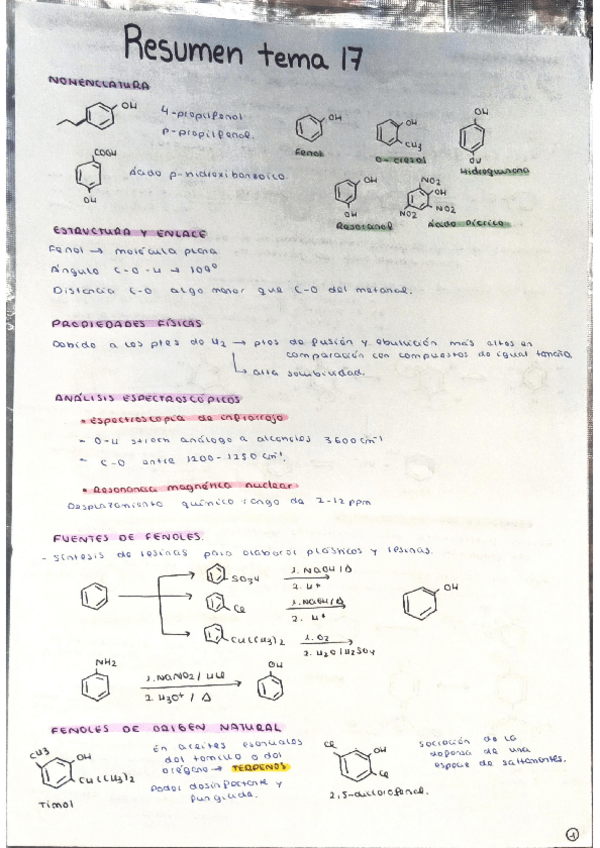 Resumen tema 17
NOMENCLATURA
OH
4-propilfenol
p-propilfenol.
OH
Fenol
OH
CH3
o-cresol
OH
OH
Hidroquinona
COOH
OH
Ácido p-hidroxibenzoico.
OH
OH
Resorcinol
NO2
OH
NO2
NO2
Ácido pícrico
ESTRUCTURA Y ENLACE
Fenol → molécula plana
Ángulo C-O-H → 109º
Distancia C-O algo menor que C-O del metanol.
PROPIEDADES FÍSICAS
Debido a los ptes de H2 → ptos de fusión y ebullición más altos en
comparación con compuestos de igual tamaño
↳ alta solubilidad.
ANÁLISIS ESPECTROSCÓPICOS
• Espectroscopía de infrarrojo
- O-H strech análogo a alcoholes 3600cm-1
- C-O entre 1200-1250 cm-1.
• Resonancia magnética nuclear
Desplazamiento químico: rango de 2-12 ppm
FUENTES DE FENOLES.
- Síntesis de resinas para elaborar plásticos y resinas.
SO3H
1. NaOH/Δ
2. H+
Cl
1. NaOH/Δ
2. H+
OH
CH(CH3)2
1. O2
2. H2O/H2SO4
NH2
1. NaNO2/HCl
2. H3O+/Δ
OH
FENOLES DE ORIGEN NATURAL
CH3
OH
CH(CH3)2
Timol
En aceites esenciales
del tomillo o del
orégano → TERPENOS
Poder desinfectante y
fungicida.
Cl
OH
Cl
2,5-diclorofenol.
Secreción de la
defensa de una
especie de saltamontes.
1